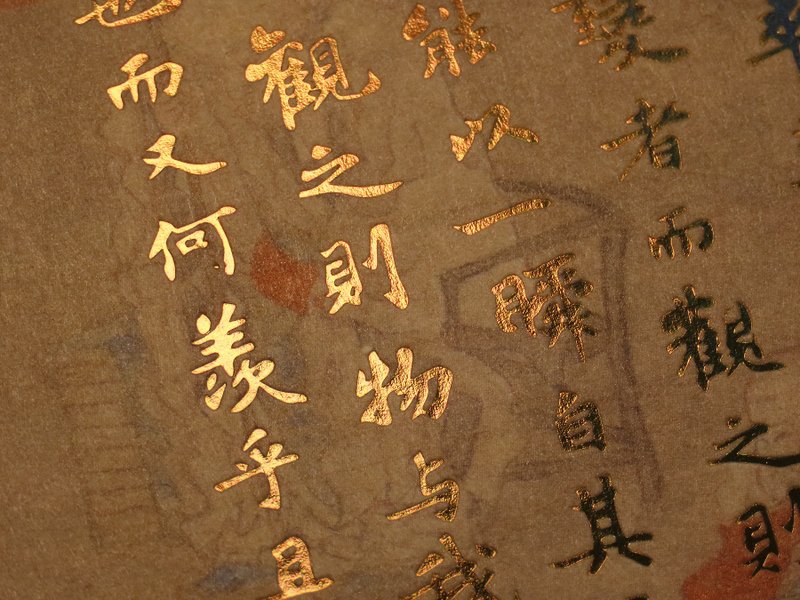 卒
變者而觀之則
能以一瞬自其
觀之則物与我
也而又何羨乎且